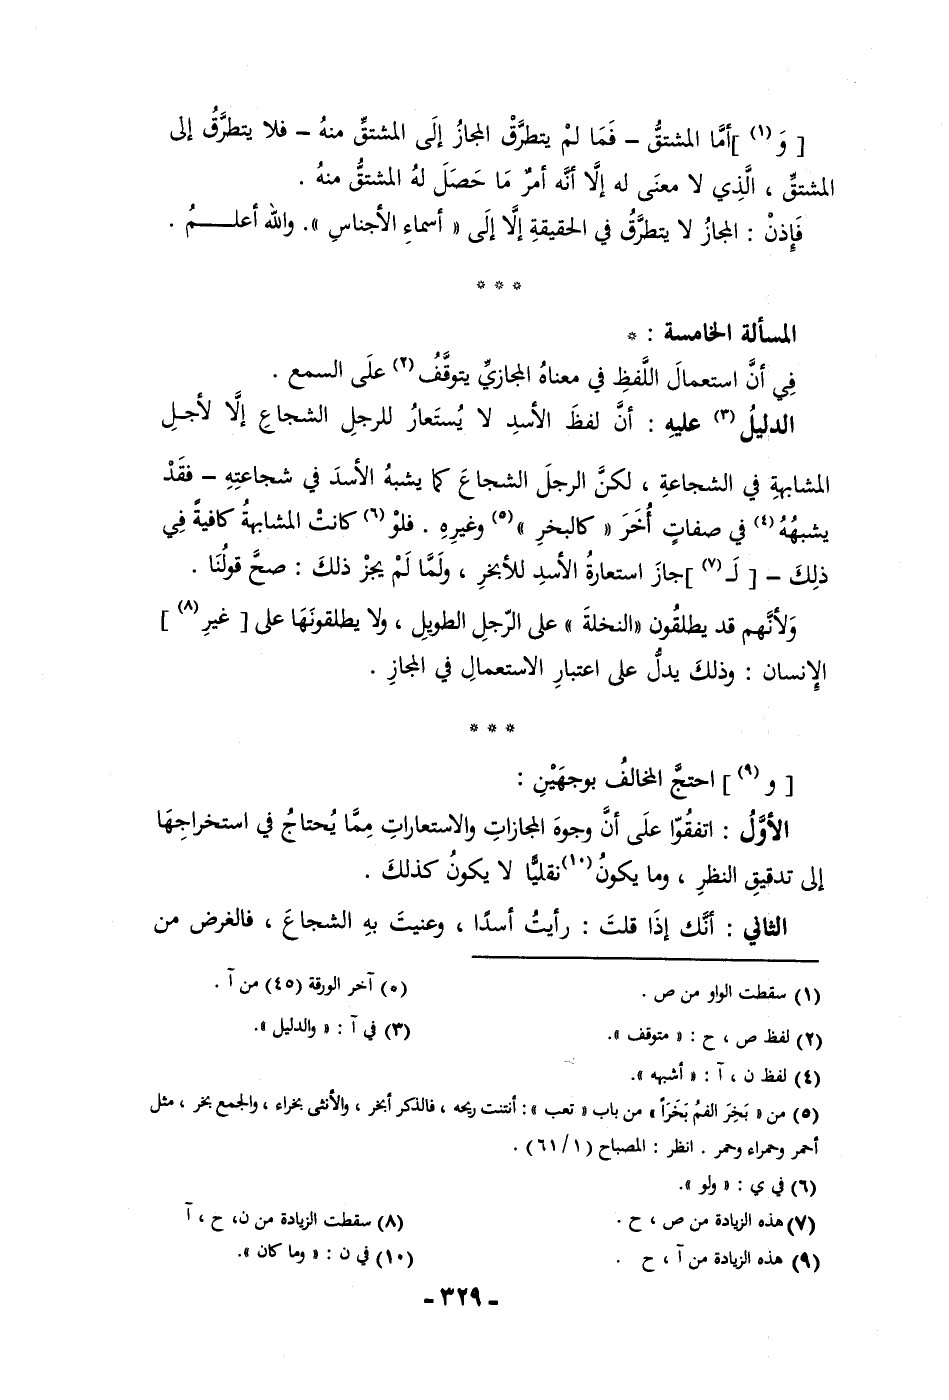 [ وَ (١) ] أمَّا المشتقُّ – فَمَا لمْ يتطرَّقْ المجازُ إلَى المشتقِّ منهُ – فلا يتطرَّقُ إلى
المشتقِّ ، الَّذِي لا معنَى له إلَّا أنَّه أمرٌ مَا حَصَلَ لهُ المشتقُّ منهُ .
فَإِذنْ : المجازُ لا يتطرَّقُ في الحقيقةِ إلَّا إلَى « أسماءِ الأجناسِ ». والله أعلـــــمُ .
* * *
المسألة الخامسة : *
فِي أنَّ استعمالَ اللَّفظِ في معناهُ المجازيِّ يتوقَّفُ (٢) علَى السمع .
الدليلُ (٣) عليهِ : أنَّ لفظَ الأسدِ لا يُستَعارُ للرجلِ الشجاعِ إلَّا لأجلِ
المشابهةِ في الشجاعةِ ، لكنَّ الرجلَ الشجاعَ كما يشبهُ الأسدَ في شجاعتِهِ – فقَدْ
يشبهُهُ (٤) في صفاتٍ أُخَرَ « كالبخرِ » (٥) وغيرِهِ . فلوْ (٦) كانتْ المشابهةُ كافيةً فِي
ذلِكَ – [ لَـ (٧) ] جازَ استعارةُ الأسدِ للأبخرِ ، ولَمَّا لَمْ يجزْ ذلكَ : صحَّ قولُنَا .
وَلأنَّهم قد يطلقُون «النخلةَ » على الرّجلِ الطويلِ ، ولا يطلقونَهَا على [ غيرِ (٨) ]
الإنسان : وذلكَ يدلُّ على اعتبارِ الاستعمالِ في المجازِ .
* * *
[ و (٩) ] احتجَّ المخالفُ بوجهَيْنِ :
الأوَّلُ : اتفقُوّا علَى أنَّ وجوهَ المجازاتِ والاستعاراتِ مِمَّا يُحتاجُ في استخراجِهَا
إلى تدقيقِ النظرِ ، وما يكونُ (١٠) نقليًّا لا يكونُ كذلكَ .
الثاني : أنَّك إذَا قلتَ : رأيتُ أسدًا ، وعنيتَ بهِ الشجاعَ ، فالغرض من
(١) سقطت الواو من ص . (٥) آخر الورقة (٤٥) من آ .
(٢) لفظ ص ، ح : « متوقف ». (٣) في آ : « والدليل ».
(٤) لفظ ن ، آ : « أشبهه ».
(٥) من « بَخِرَ الفمُ بَخَرَاً » من باب « تعب » : أنتنت ريحه ، فالذكر أبخر ، والأنثى بخراء ، والجمع بخر ، مثل
أحمر وحمراء وحمر . انظر : المصباح (٦١/١) .
(٦) في ي : « ولو ».
(٧) هذه الزيادة من ص ، ح . (٨) سقطت الزيادة من ن، ح ، آ
(٩) هذه الزيادة من آ ، ح . (١٠) في ن : « وما كان ».
- ٣٢٩ -